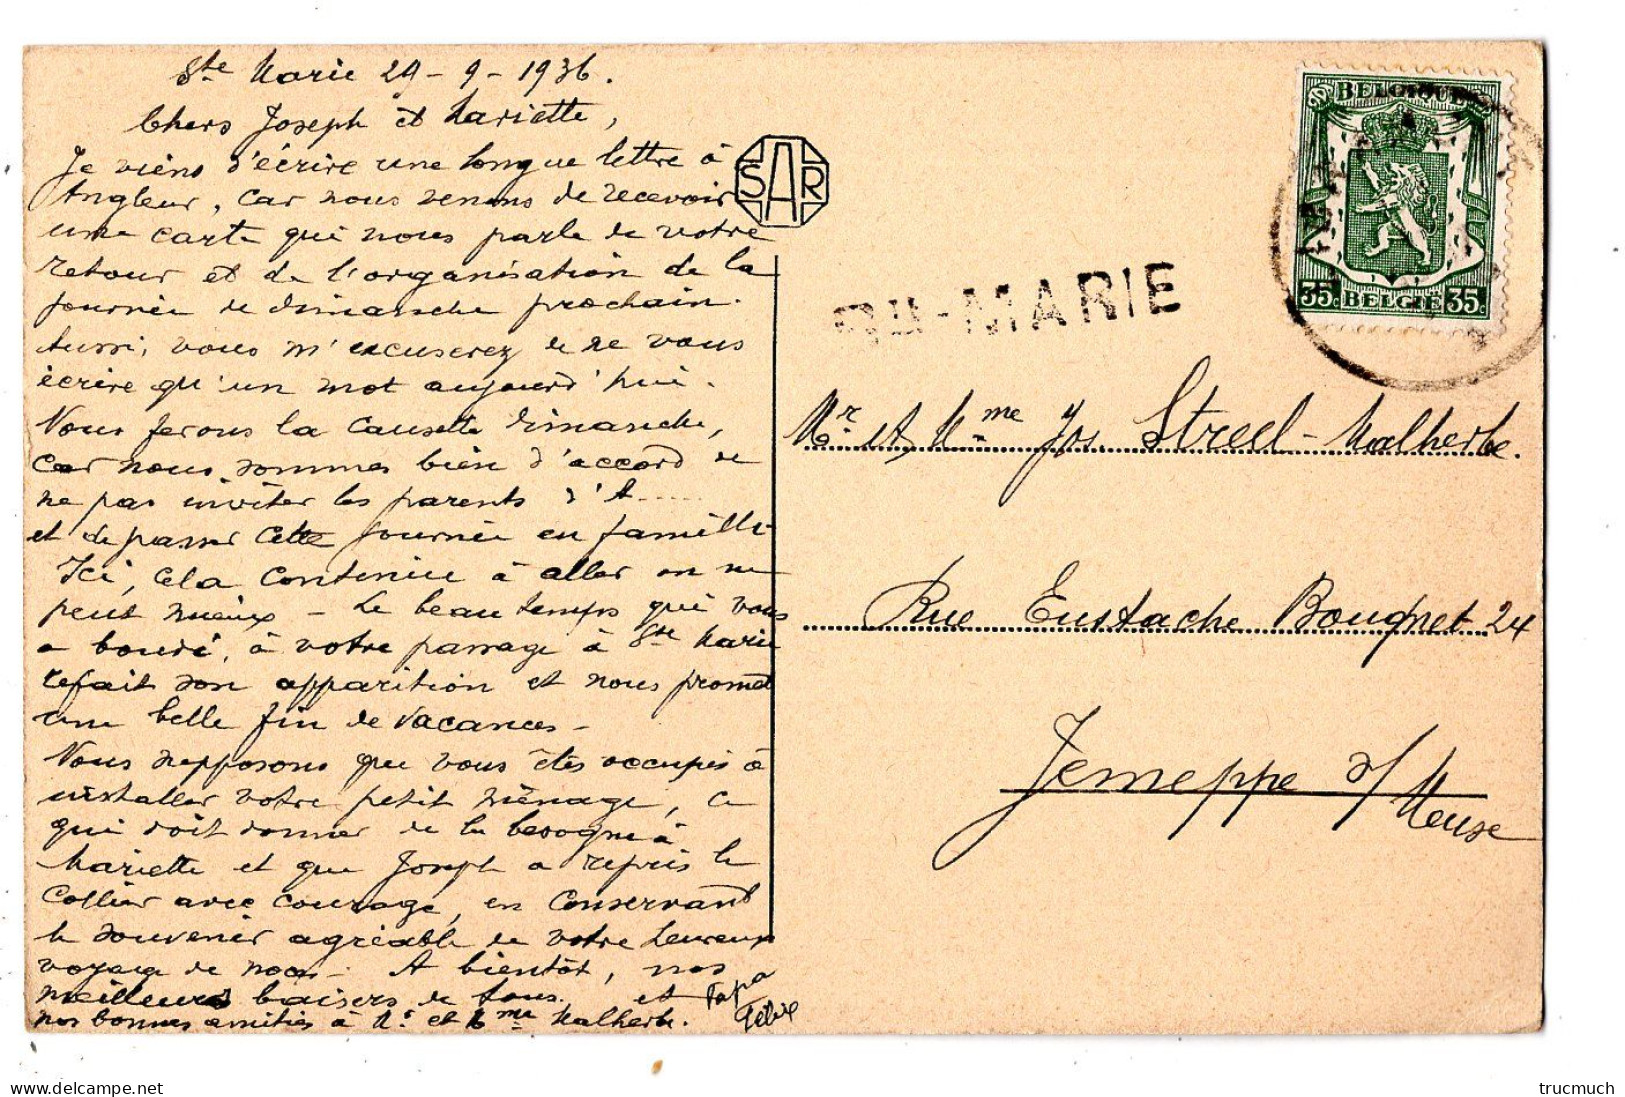 Ste Marie 29-9-1936.
Chers Joseph et Mariette,
Je viens d'écrire une longue lettre à
Angleur, car nous venons de recevoir
une carte qui nous parle de votre
retour et de l'organisation de la
journée de dimanche prochain.
Aussi, vous m'excuserez de ne vous
écrire qu'un mot aujourd'hui.
Nous ferons la causette dimanche,
car nous sommes bien d'accord de
ne pas inviter les parents d'A.....
et de passer cette journée en famille
Ici, cela continue à aller on ne
peut mieux - Le beau temps qui vous
a boudé, à votre passage à Ste Marie
refait son apparition et nous promet
une belle fin de vacances -
Nous supposons que vous êtes occupés à
installer votre petit ménage, ce
qui doit donner de la besogne à
Mariette et que Joseph a repris le
collier avec courage, en conservant
le souvenir agréable de votre heureux
voyage de noces - A bientôt, nos
meilleurs baisers de tous, et
nos bonnes amitiés à Mr et Mme Malherbe.
Papa
Félix
SAR
BELGIQUE
35c BELGIE 35c
-MARIE
Mr et Mme Jos. Streel-Malherbe.
Rue Eustache Bougnet 24
Jemeppe s/
Meuse
delcampe.net
trucmuch